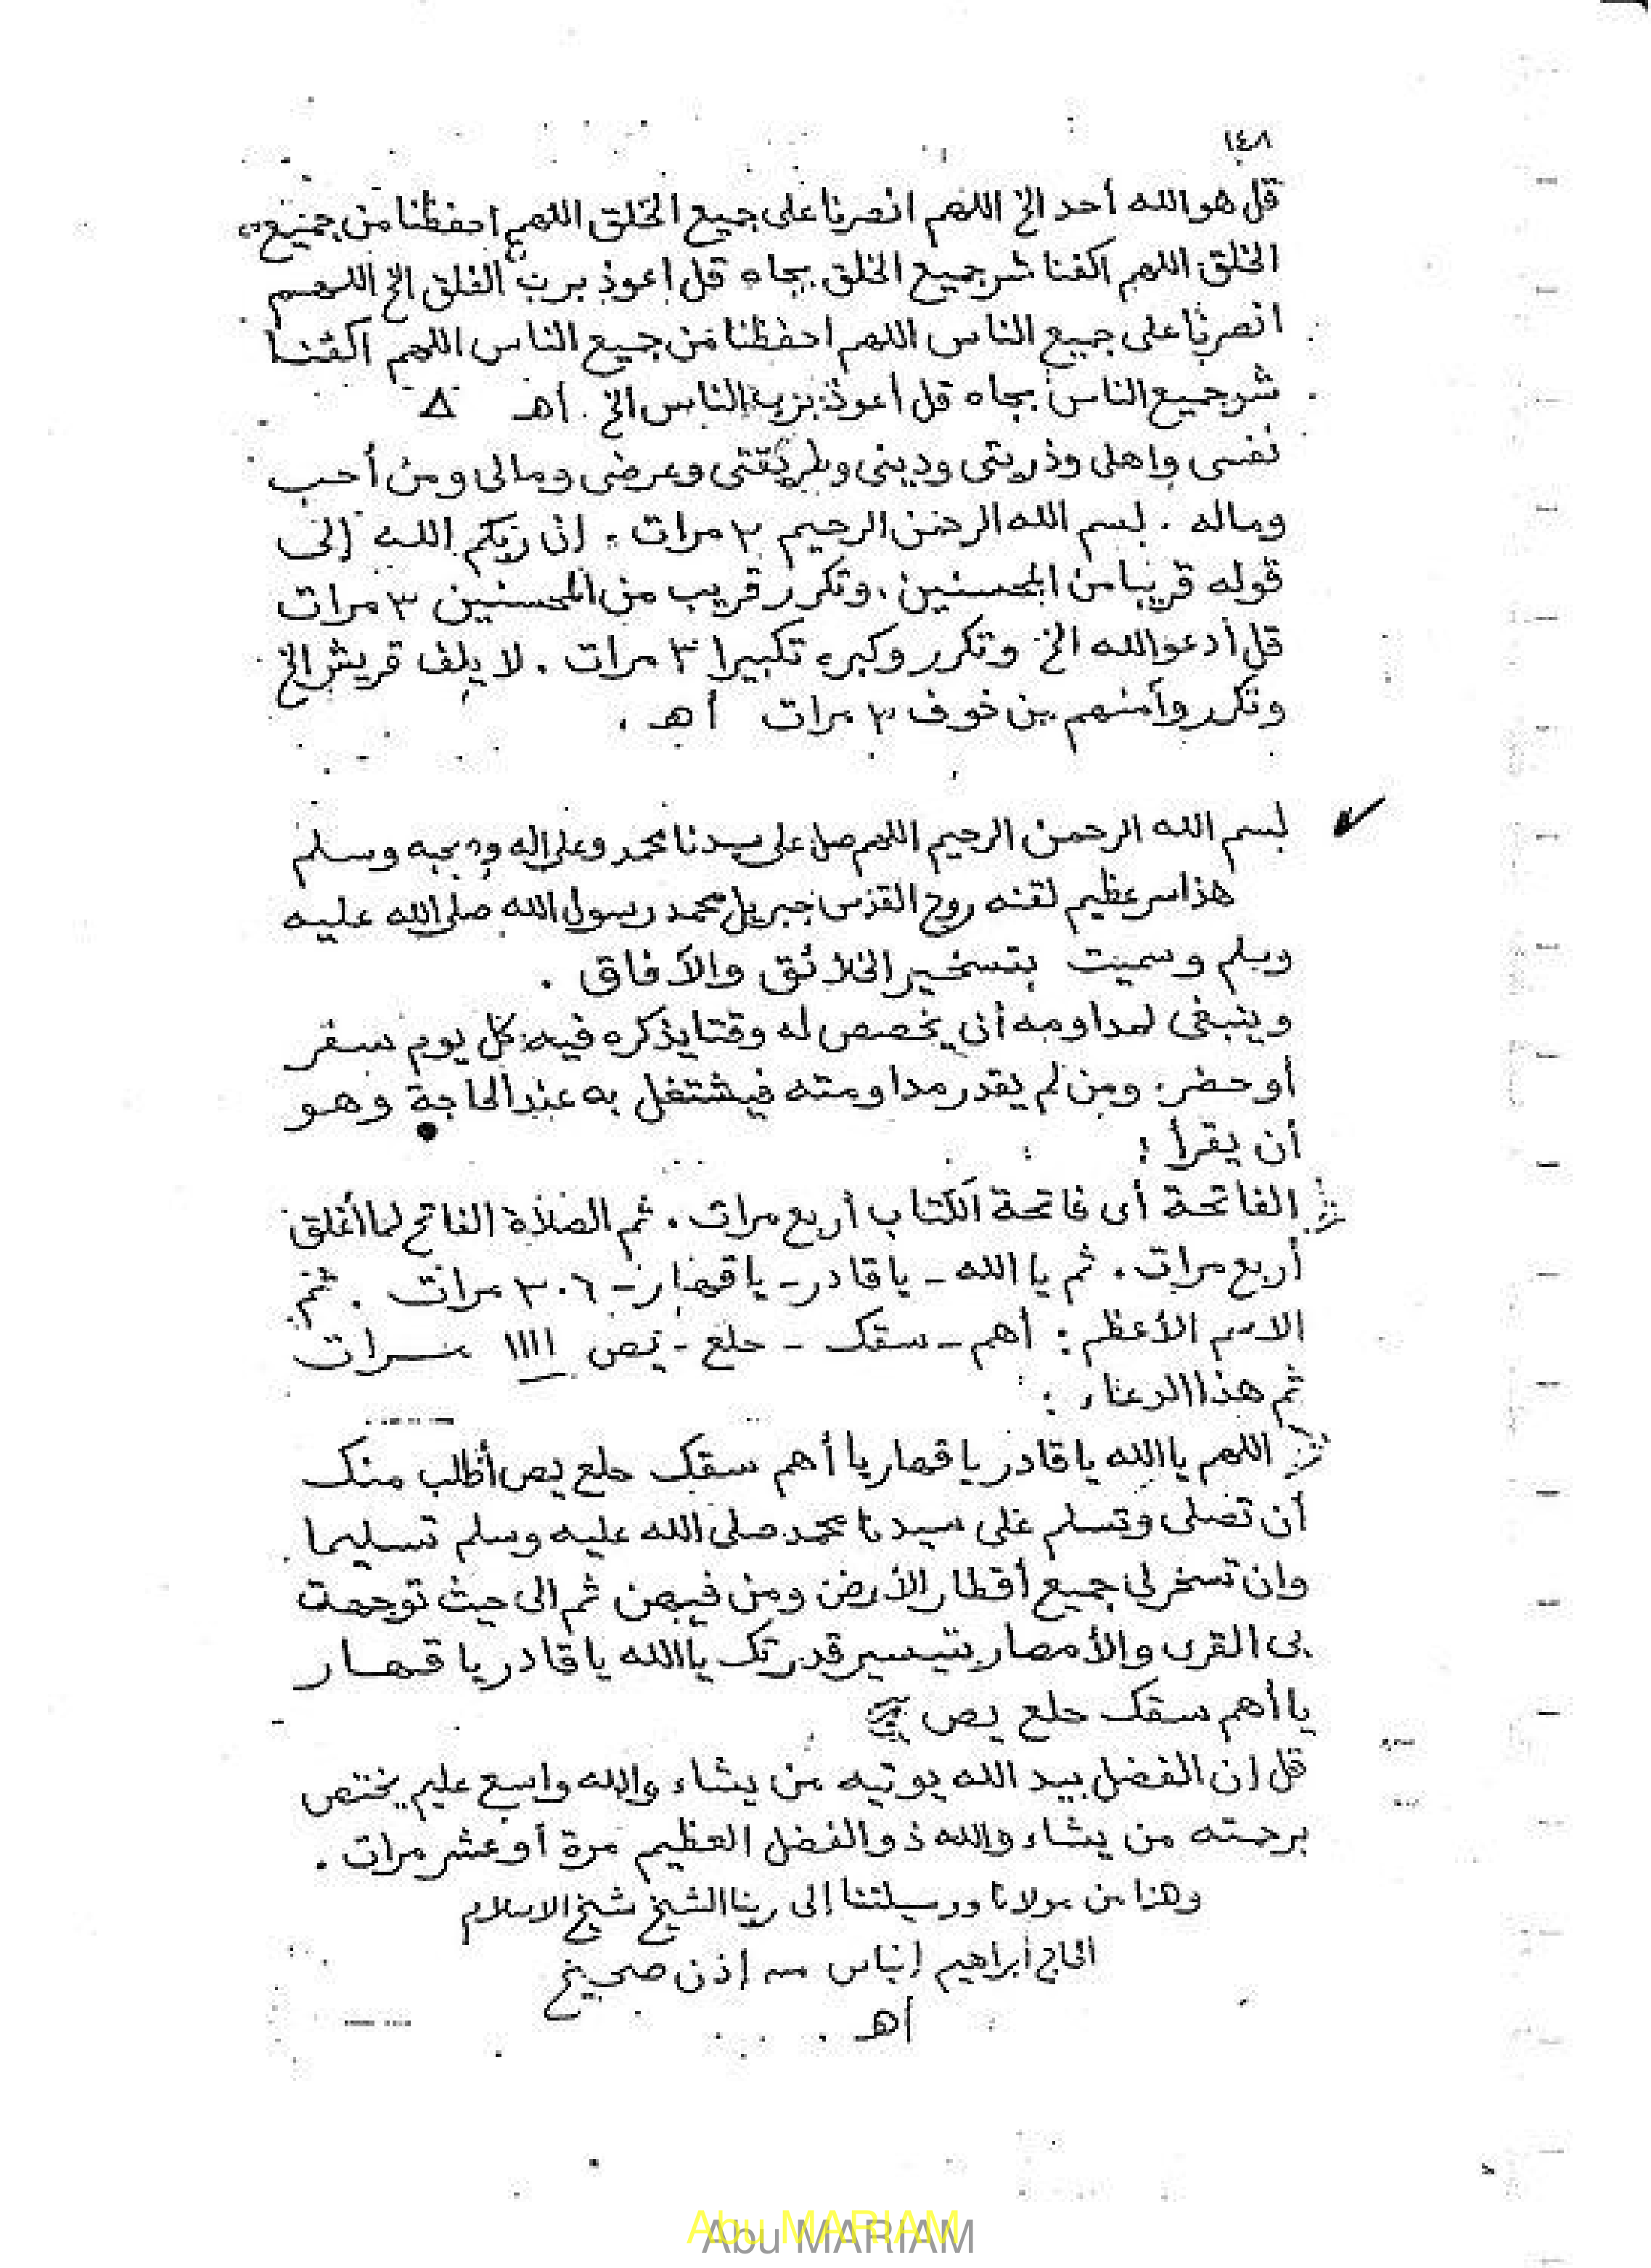 ١٤٨
قل هو الله أحد الخ اللهم انصرنا على جميع الخلق اللهم احفظنا من جميع
الخلق اللهم اكفنا شر جميع الخلق بجاه قل اعوذ برب الفلق الخ اللهم
انصرنا على جميع الناس اللهم احفظنا من جميع الناس اللهم اكفنا
شر جميع الناس بجاه قل أعوذ برب الناس الخ . أهـ ∆
نفسى واهلى وذريتى ودينى وطريقتى وعرضى ومالى ومن أحب
وماله . بسم الله الرحمن الرحيم ٣ مرات . إن ربكم الله إلى
قوله قريبا من المحسنين . وتكرر قريب من المحسنين ٣ مرات
قل أدعو الله الخ وتكرر وكبره تكبيرا ٣ مرات . لا يلف قريش الخ
وتكرر وآمنهم من خوف ٣ مرات أهـ .
بسم الله الرحمن الرحيم اللهم صل على سيدنا محمد وعلى اله وصحبه وسلم
هذا سر عظيم لقنه روح القدس جبريل محمد رسول الله صلى الله عليه
وسلم وسميت بتسخير الخلائق والآفاق .
وينبغى لمداومه أن يخصص له وقتا يذكره فيه كل يوم سفر
أو حضر . ومن لم يقدر مداومته فيشتغل به عند الحاجة وهو
أن يقرأ :
الفاتحة أى فاتحة الكتاب أربع مرات . ثم الصلاة الفاتح لما أغلق
أربع مرات . ثم يا الله - يا قادر - يا قهار - ٣٠٦ مرات . ثم
الاسم الأعظم : أهم - سقك - حلع - يص ١١١١ مرات
ثم هذا الدعاء :
اللهم يا الله يا قادر يا قهار يا أهم سقك حلع يص أطلب منك
أن تصلى وتسلم على سيدنا محمد صلى الله عليه وسلم تسليما
وان تسخر لى جميع أقطار الأرض ومن فيهن ثم الى حيث توجهت
بى القرى والأمصار بتيسير قدرتك يا الله يا قادر يا قهار
يا أهم سقك حلع يص
قل إن الفضل بيد الله يوتيه من يشاء والله واسع عليم يختص
برحمته من يشاء والله ذو الفضل العظيم مرة أو عشر مرات .
وهذا من مولانا ووسيلتنا إلى ربنا الشيخ شيخ الاسلام
الحاج أبراهيم إنياس إذن صحيح
أهـ
Abu MARIAM
Abu MARIAM